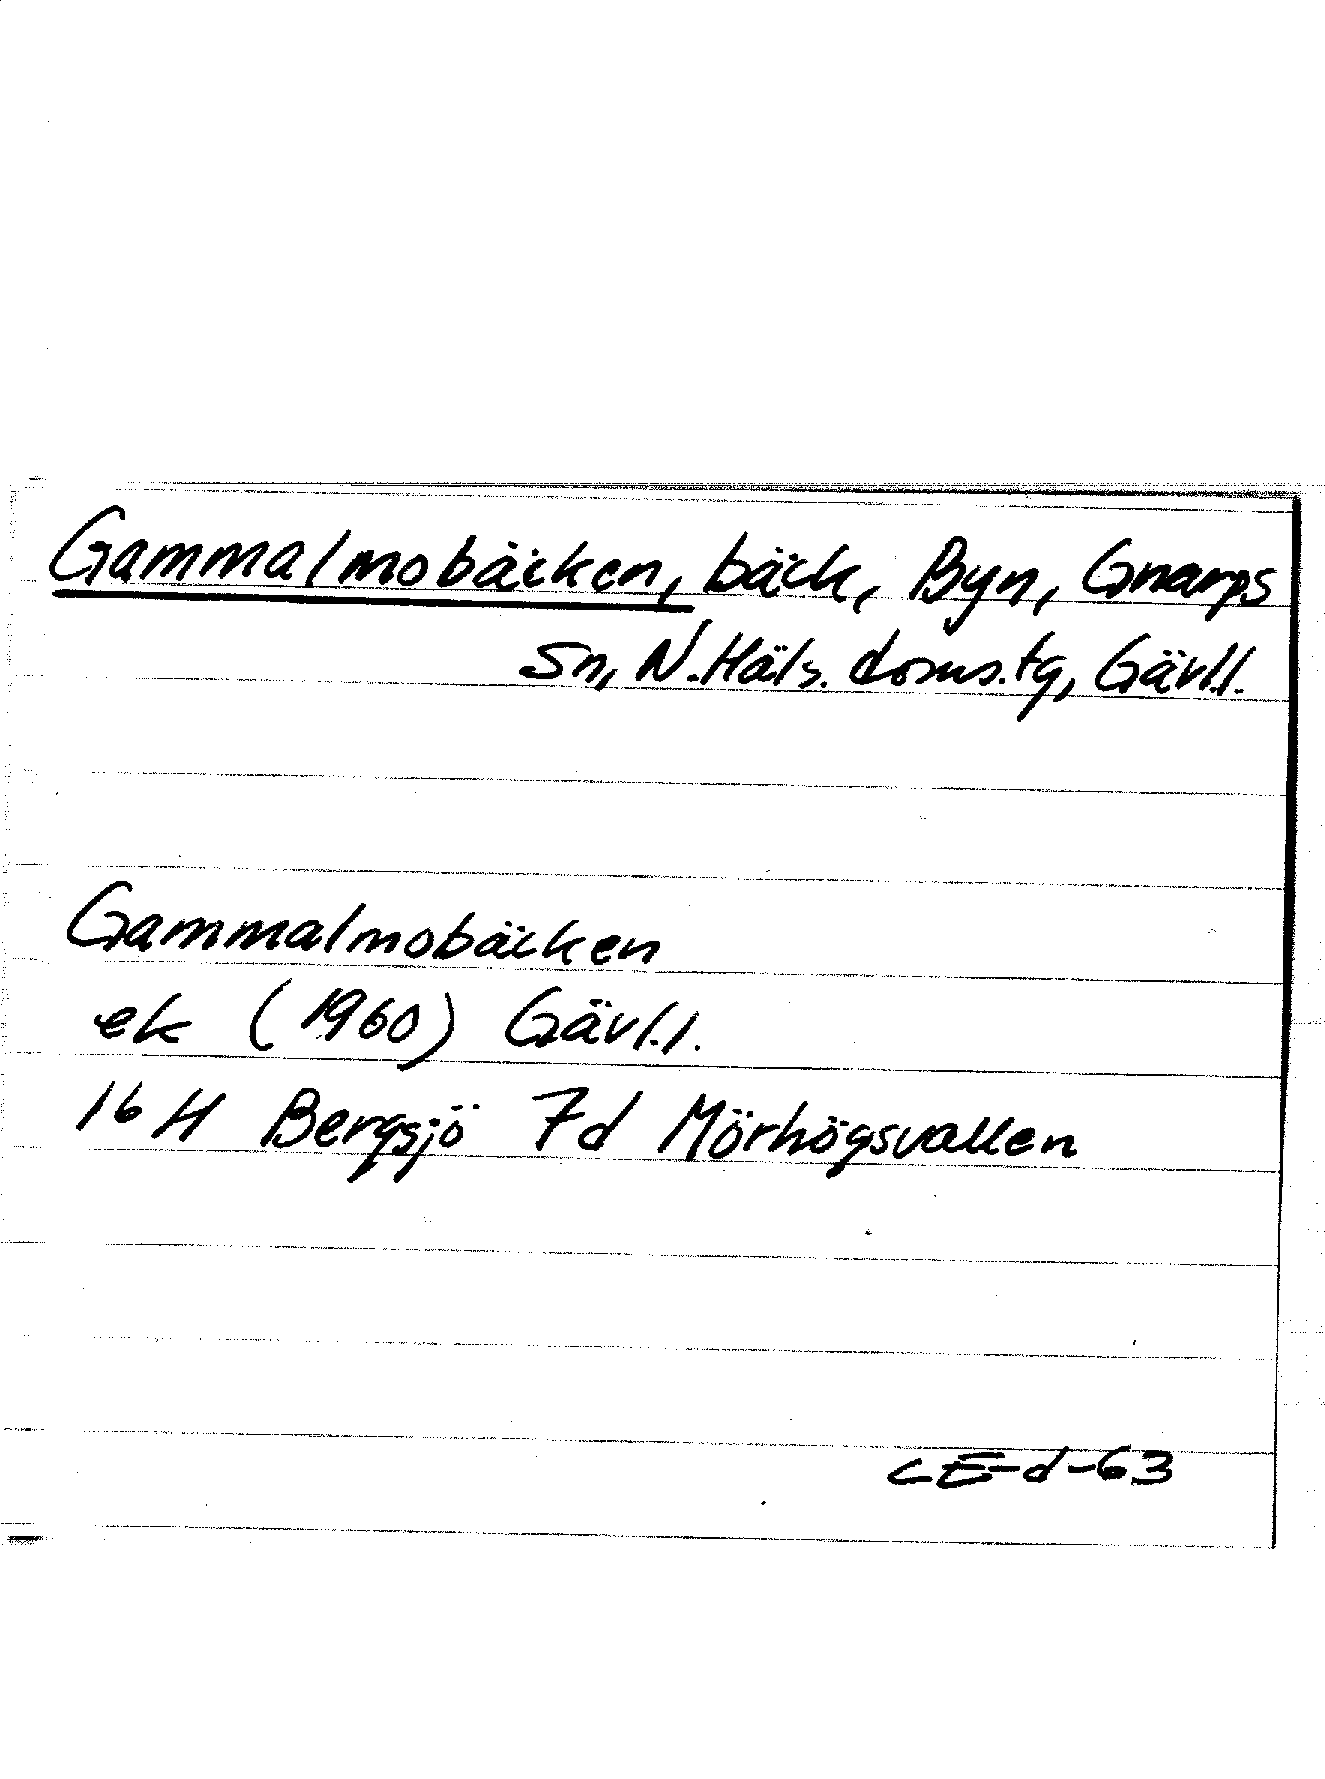 Gammalmobäcken, bäck, Byn, Gnarps
Sn, N. Häls. doms.tg, Gävl.l.
Gammalmobäcken
ek (1960) Gävl.l.
16 H Bergsjö 7d Mörhögsvallen
CE-d-63